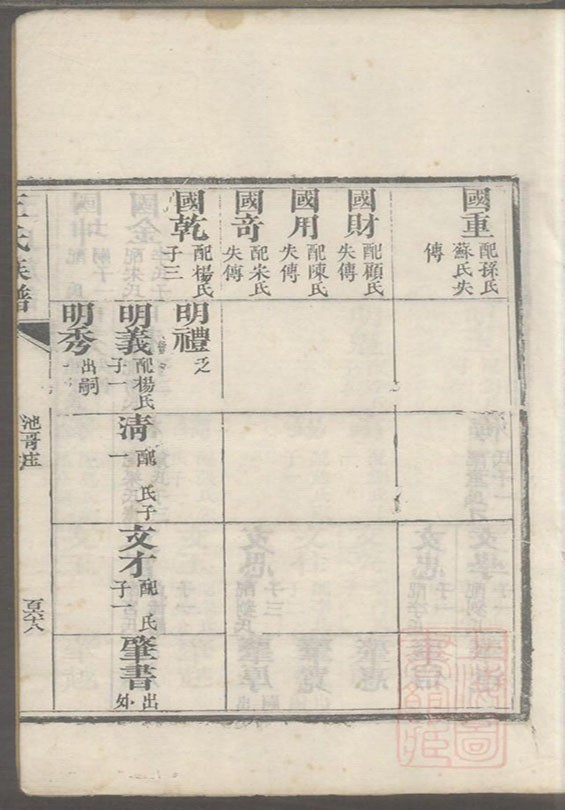 國重 配孫氏
蘇氏失
傳
國財 配顧氏
失傳
國用 配陳氏
失傳
國奇 配宋氏
失傳
國乾 配楊氏
子三
明禮 乏
明義 配楊氏
子一
明秀 出嗣
清 配 氏子
一
文才 配 氏
子一
肇書 出
外
王氏族譜